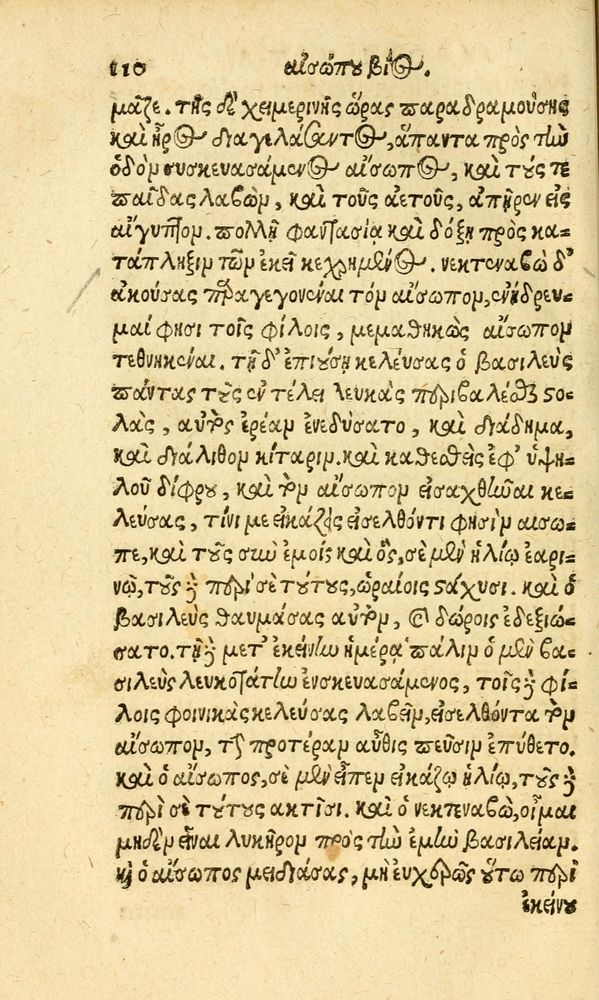 110 αἰσώπου βίος.
μαζε. τῆς δὲ χειμερινῆς ὥρας παραδραμούσης
καὶ ἦρος διαγελάσαντος, ἅπαντα πρὸς τὴν
ὁδὸν συσκευασάμενος αἴσωπος, καὶ τούς τε
παῖδας λαβὼν, καὶ τοὺς ἀετοὺς, ἀπῆρεν εἰς
αἴγυπτον. πολλῇ φαντασίᾳ καὶ δόξῃ πρὸς κα-
τάπληξιν τῶν ἐκεῖ κεχρημένος. νεκτεναβὼ δ᾽
ἀκούσας παραγεγονέναι τὸν αἴσωπον, ἐνήδρευ-
μαί φησι τοῖς φίλοις, μεμαθηκὼς αἴσωπον
τεθνηκέναι. τῇ δ᾽ ἐπιούσῃ κελεύσας ὁ βασιλεὺς
πάντας τοὺς ἐν τέλει λευκὰς περιβαλέσθαι στο-
λὰς, αὐτὸς ἐρέαν ἐνεδύσατο, καὶ διάδημα,
καὶ διάλιθον κίταριν. καὶ καθεσθεὶς ἐφ᾽ ὑψη-
λοῦ δίφρου, καὶ τὸν αἴσωπον εἰσαχθῆναι κε-
λεύσας, τίνι με εἰκάζεις εἰσελθόντι φησὶν αἴσω-
πε, καὶ τοὺς σὺν ἐμοί; καὶ ὃς, σὲ μὲν ἡλίῳ ἐαρι-
νῷ, τοὺς δὲ περὶ σὲ τούτους, ὡραίοις στάχυσι. καὶ ὁ
βασιλεὺς θαυμάσας αὐτὸν, καὶ δώροις ἐδεξιώ-
σατο. τῇ δὲ μετ᾽ ἐκείνην ἡμέρᾳ πάλιν ὁ μὲν βα-
σιλεὺς λευκοτάτην ἐνσκευασάμενος, τοῖς δὲ φί-
λοις φοινικὰς κελεύσας λαβεῖν, εἰσελθόντα τὸν
αἴσωπον, τὴν προτέραν αὖθις πεῦσιν ἐπύθετο.
καὶ ὁ αἴσωπος, σὲ μὲν εἶπεν εἰκάζω ἡλίῳ, τοὺς δὲ
περὶ σὲ τούτους ἀκτῖσι. καὶ ὁ νεκτεναβὼ, οἶμαι
μηδὲν εἶναι λυκῆρον πρὸς τὴν ἐμὴν βασιλείαν.
καὶ ὁ αἴσωπος μειδιάσας, μὴ εὐχερῶς οὕτω περὶ
ἐκείνου